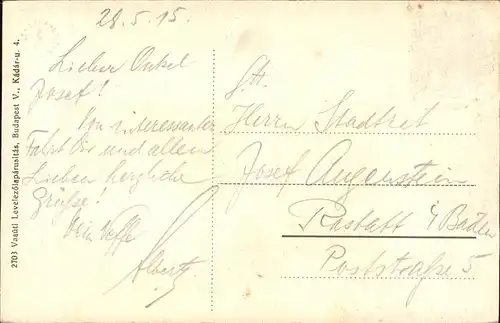 28.5.15.
Lieber Onkel
Josef!
Von interessanter
Fahrt Dir und allen
Lieben herzliche
Grüße!
Dein Neffe
Albert
Herrn Stadtrat
Josef Augenstein
Rastatt i/Baden
Poststraße 5
2703 Vasúti Levelezőlapárusítás, Budapest V., Kádár-u. 4.